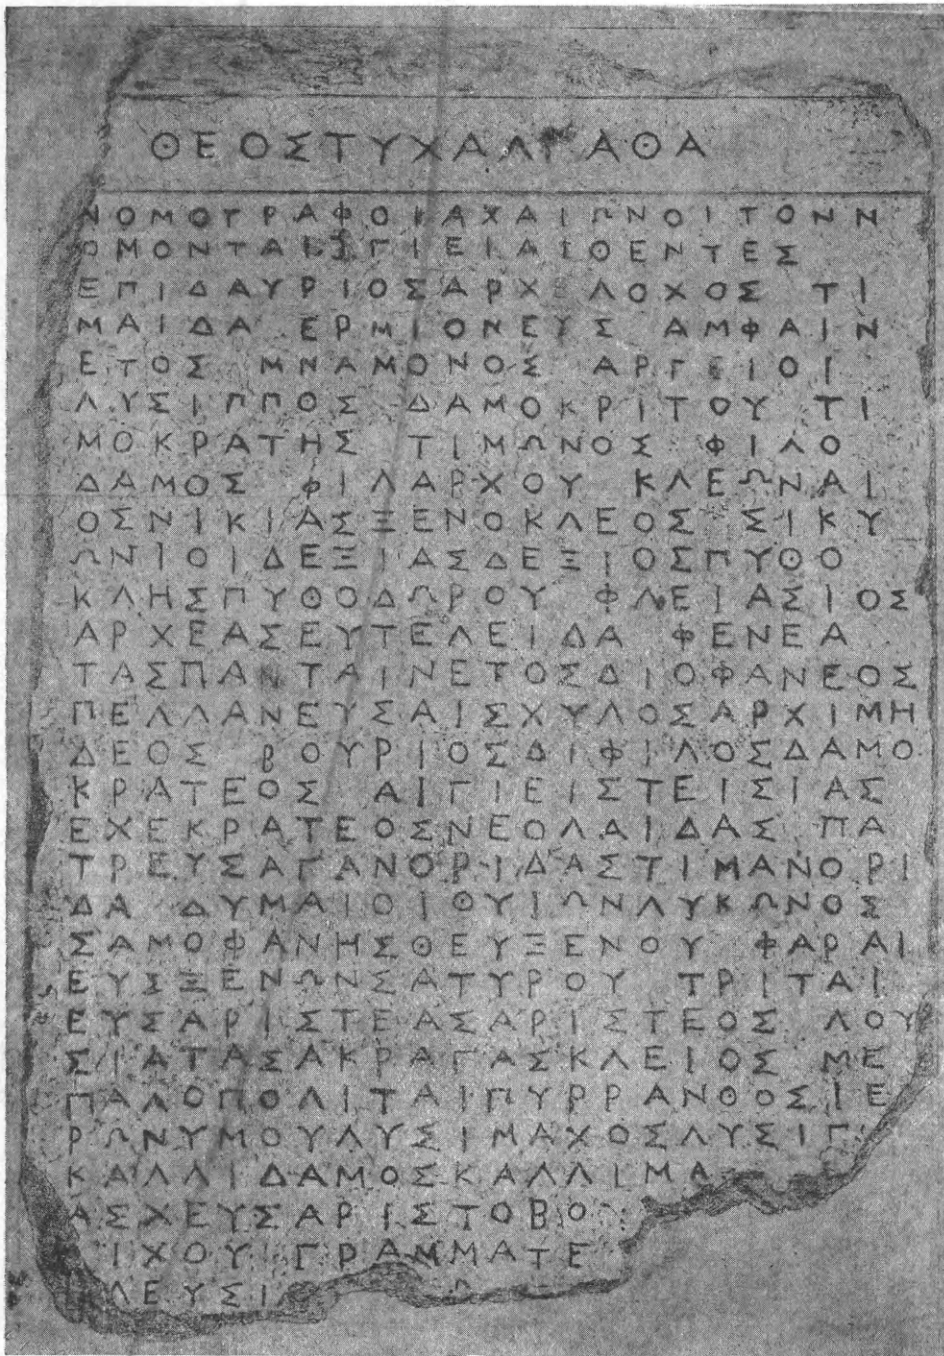 ΘΕΟΣΤΥΧΑΑΓΑΘΑ
ΝΟΜΟΓΡΑΦΟΙΑΧΑΙΩΝΟΙΤΟΝΝ
ΟΜΟΝΤΑΙΥΓΙΕΙΑΙΘΕΝΤΕΣ
ΕΠΙΔΑΥΡΙΟΣΑΡΧΕΛΟΧΟΣ ΤΙ
ΜΑΙΔΑ ΕΡΜΙΟΝΕΥΣ ΑΜΦΑΙΝ
ΕΤΟΣ ΜΝΑΜΟΝΟΣ ΑΡΓΕΙΟΙ
ΛΥΣΙΠΠΟΣ ΔΑΜΟΚΡΙΤΟΥ ΤΙ
ΜΟΚΡΑΤΗΣ ΤΙΜΩΝΟΣ ΦΙΛΟ
ΔΑΜΟΣ ΦΙΛΑΡΧΟΥ ΚΛΕΩΝΑΙ
ΟΣΝΙΚΙΑΣΞΕΝΟΚΛΕΟΣ ΣΙΚΥ
ΩΝΙΟΙΔΕΞΙΑΣΔΕΞΙΟΣΠΥΘΟ
ΚΛΗΣΠΥΘΟΔΩΡΟΥ ΦΛΕΙΑΣΙΟΣ
ΑΡΧΕΑΣΕΥΤΕΛΕΙΔΑ ΦΕΝΕΑ
ΤΑΣΠΑΝΤΑΙΝΕΤΟΣΔΙΟΦΑΝΕΟΣ
ΠΕΛΛΑΝΕΥΣΑΙΣΧΥΛΟΣΑΡΧΙΜΗ
ΔΕΟΣ ΒΟΥΡΙΟΣΔΙΦΙΛΟΣΔΑΜΟ
ΚΡΑΤΕΟΣ ΑΙΓΙΕΙΣΤΕΙΣΙΑΣ
ΕΧΕΚΡΑΤΕΟΣΝΕΟΛΑΙΔΑΣ ΠΑ
ΤΡΕΥΣΑΓΑΝΟΡΙΔΑΣΤΙΜΑΝΟΡΙ
ΔΑ ΔΥΜΑΙΟΙΘΥΙΩΝΛΥΚΩΝΟΣ
ΣΑΜΟΦΑΝΗΣΘΕΥΞΕΝΟΥ ΦΑΡΑΙ
ΕΥΣΞΕΝΩΝΣΑΤΥΡΟΥ ΤΡΙΤΑΙ
ΕΥΣΑΡΙΣΤΕΑΣΑΡΙΣΤΕΟΣ ΛΟΥ
ΣΙΑΤΑΣΑΚΡΑΓΑΣΚΛΕΙΟΣ ΜΕ
ΠΑΛΟΠΟΛΙΤΑΙΠΥΡΡΑΝΘΟΣΙΕ
ΡΩΝΥΜΟΥΛΥΣΙΜΑΧΟΣΛΥΣΙΠ
ΚΑΛΛΙΔΑΜΟΣΚΑΛΛΙΜΑ
ΑΣΧΕΥΣΑΡΙΣΤΟΒΟ
ΙΧΟΥΙΓΡΑΜΜΑΤΕ
ΛΕΥΣΙ